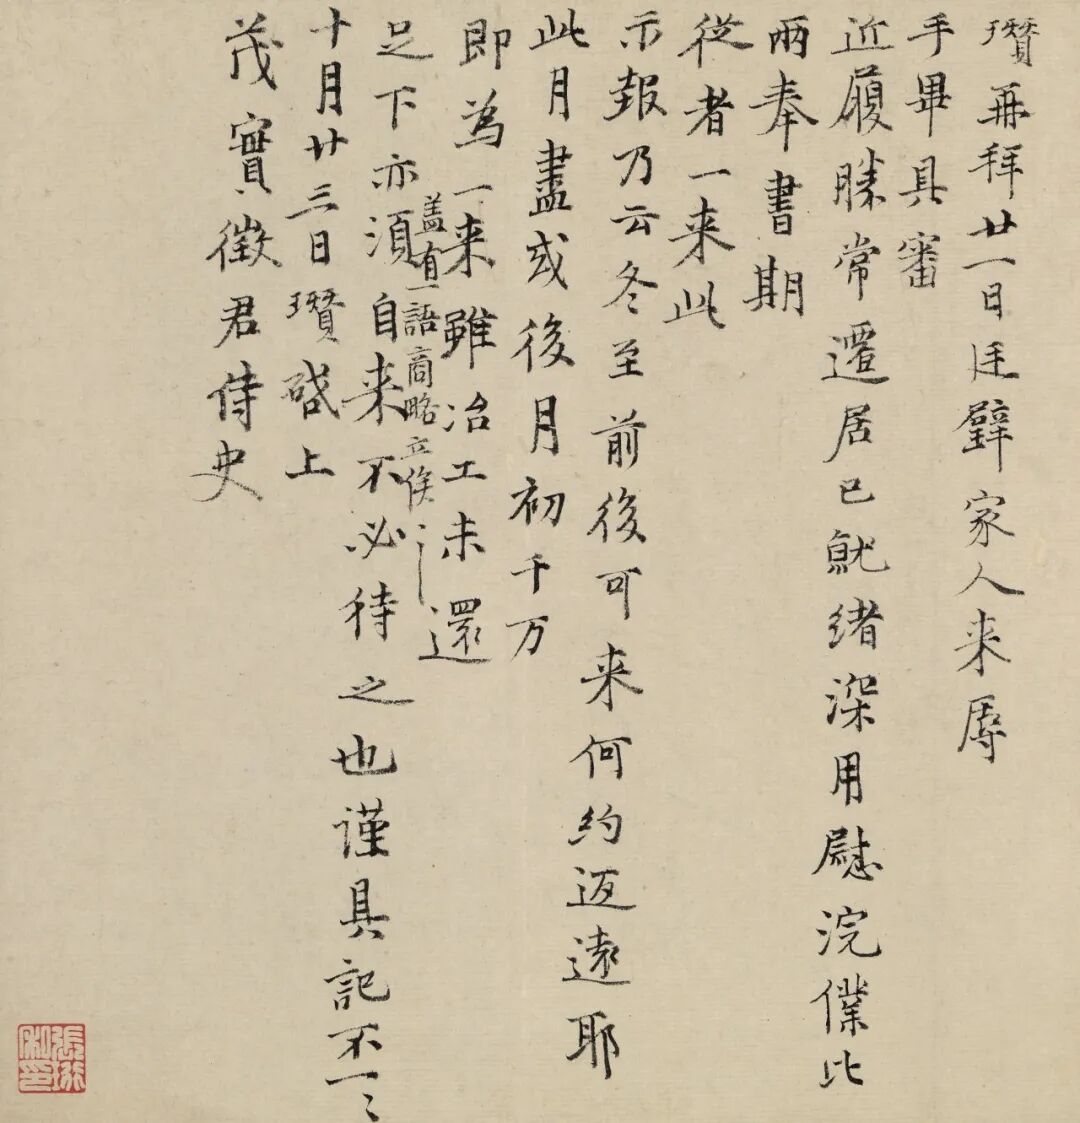 瓚再拜廿一日廷璧家人来辱
手畢具審
近履勝常遷居已就緒深用慰浣僕比
兩奉書期
從者一来此
示報乃云冬至前後可来何約遠耶
此月盡或後月初千万
即為一来雖冶工未還
盖有一語商略立俟〻
足下亦須自来不必待之也謹具記不一〻
十月廿三日瓚啓上
茂實徵君侍史
張珩私印